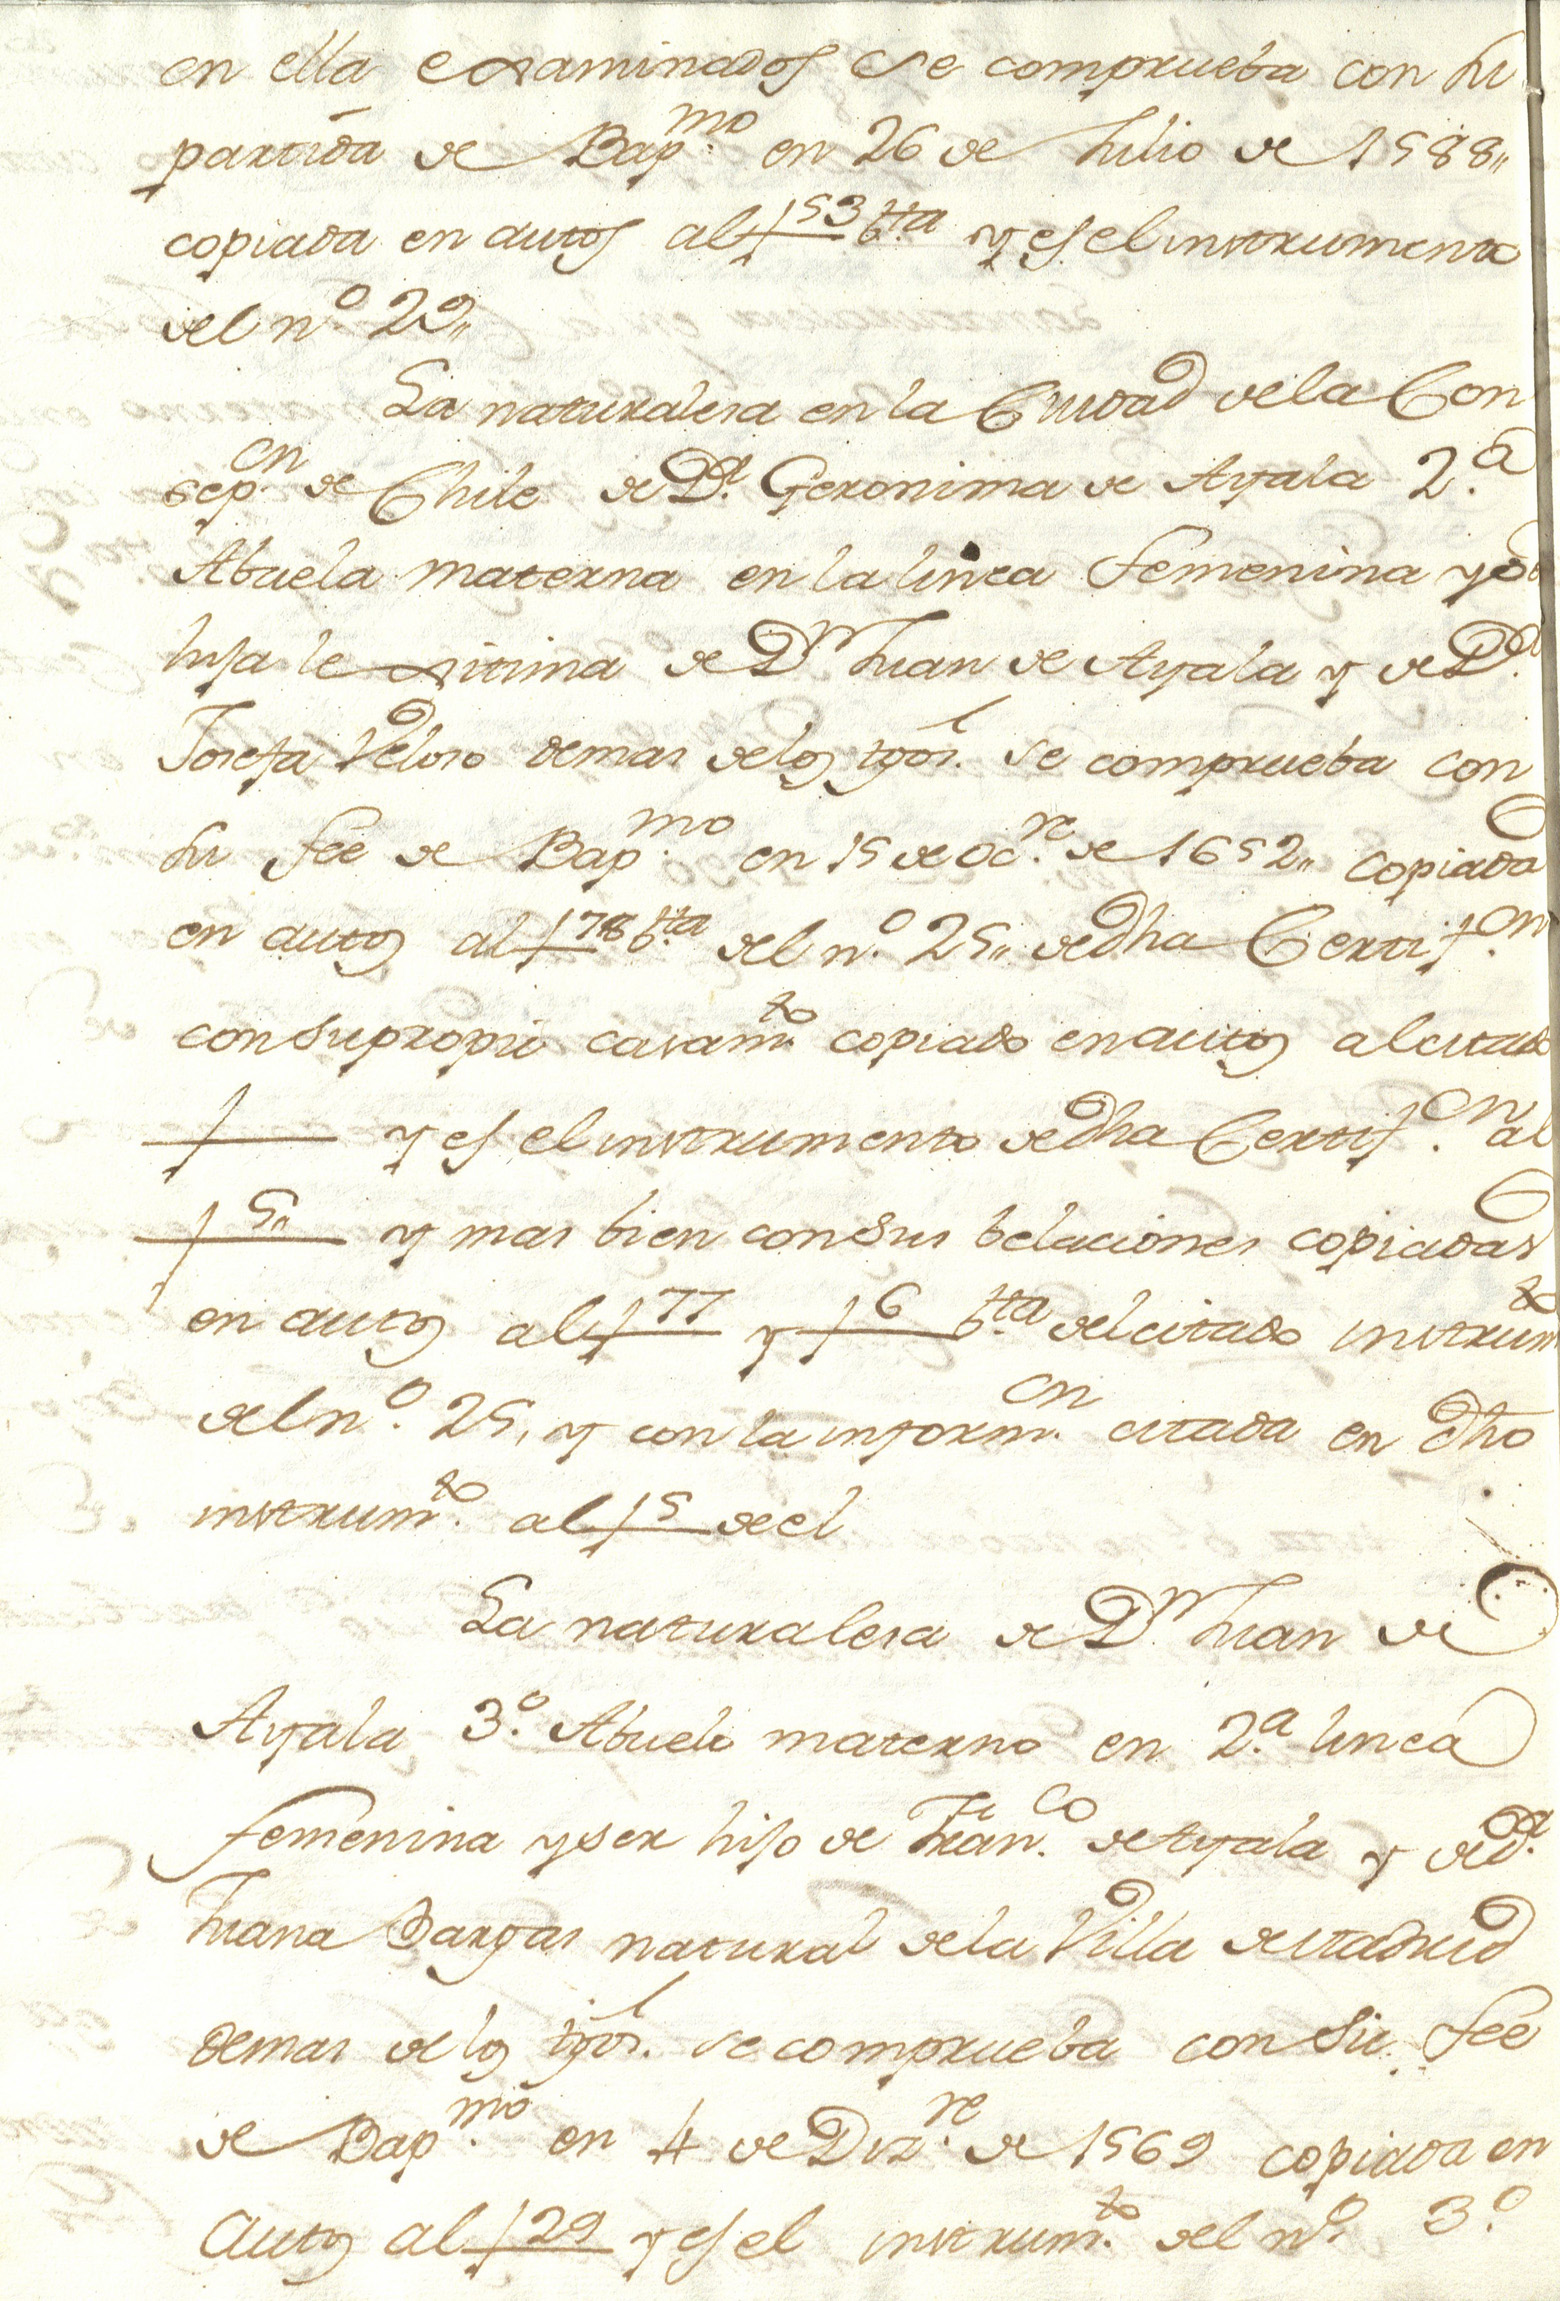 en ella examinados se comprueba con su
partida de Bap.mo en 26 de Julio de 1588,,
copiada en autos al f 53 bta y es el instrumento
del n.o 29,,
La naturalesa en la Ciudad de la Con
sep.cn de Chile de D.a Geronima de Ayala 2.a
Abuela materna en la linea femenina y
hija lexitima de D.n Juan de Ayala y de D.a
Josefa Veloso demas de los tgos. se comprueba con
su fee de Bap.mo en 15 de oc.re de 1652,, copiada
en autos al f 78 bta del n.o 25,, de dha Certif.on
con su propio casam.to copiado en autos al citado
f y es el instrumento de dha Certif.on al
f 5,, y mas bien con sus belaciones copiadas
en autos al f 77 y f 6 bta del citado instrum.to
del n.o 25, y con la inform.cn citada en dho
instrum.to al f 5 de el
La naturalesa de D.n Juan de
Ayala 3.o Abuelo materno en 2.a linea
femenina y ser hijo de Fran.co de Ayala y de d.a
Juana Bargas natural de la Villa de Madrid
demas de los tgos. se comprueba con su fee
de Bap.mo en 4 de Diz.re de 1569 copiada en
autos al f 29 y es el instrum.to del n.o 3.o